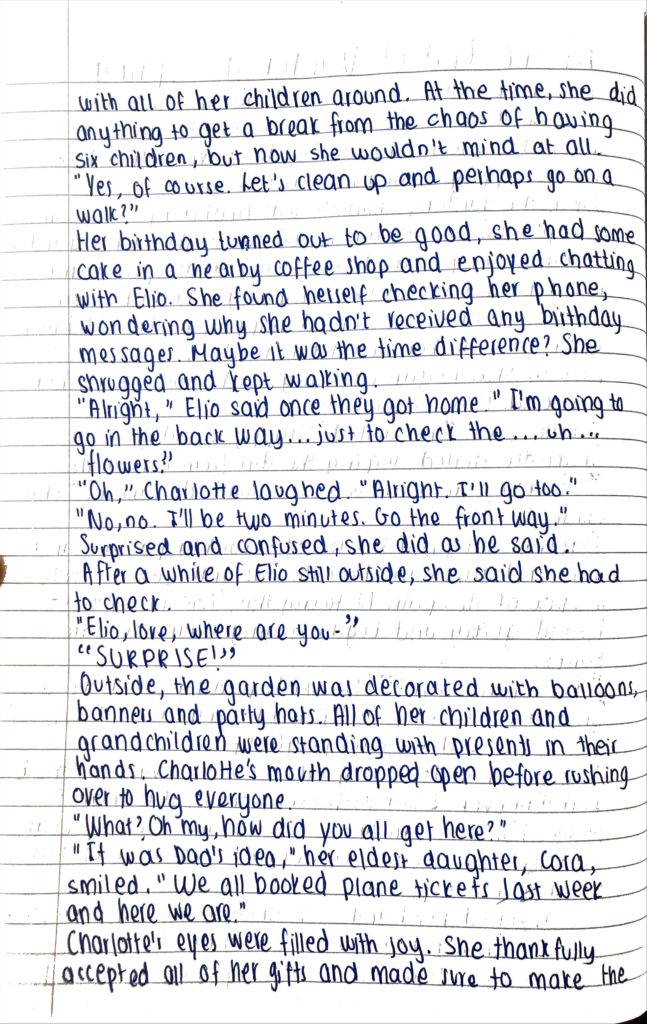 with all of her children around. At the time, she did
anything to get a break from the chaos of having
six children, but now she wouldn't mind at all.
"Yes, of course. Let's clean up and perhaps go on a
walk?"
Her birthday turned out to be good, she had some
cake in a nearby coffee shop and enjoyed chatting
with Elio. She found herself checking her phone,
wondering why she hadn't received any birthday
messages. Maybe it was the time difference? She
shrugged and kept walking.
"Alright," Elio said once they got home. "I'm going to
go in the back way... just to check the... uh...
flowers."
"Oh," Charlotte laughed. "Alright. I'll go too."
"No, no. I'll be two minutes. Go the front way."
Surprised and confused, she did as he said.
After a while of Elio still outside, she said she had
to check.
"Elio, love, where are you-"
"SURPRISE!"
Outside, the garden was decorated with balloons,
banners and party hats. All of her children and
grandchildren were standing with presents in their
hands. Charlotte's mouth dropped open before rushing
over to hug everyone.
"What? Oh my, how did you all get here?"
"It was Dad's idea," her eldest daughter, Cora,
smiled. "We all booked plane tickets last week
and here we are."
Charlotte's eyes were filled with joy. She thankfully
accepted all of her gifts and made sure to make the